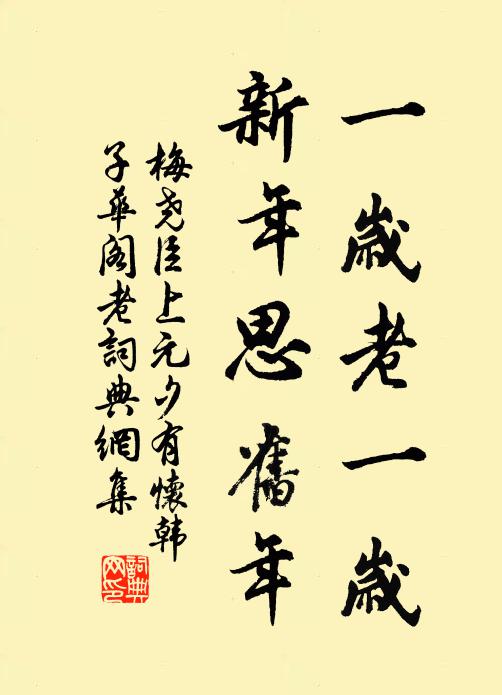 一歲老一歲
新年思舊年
梅堯臣上元夕有懷韩
子華阁老詞典網集
詞典网印